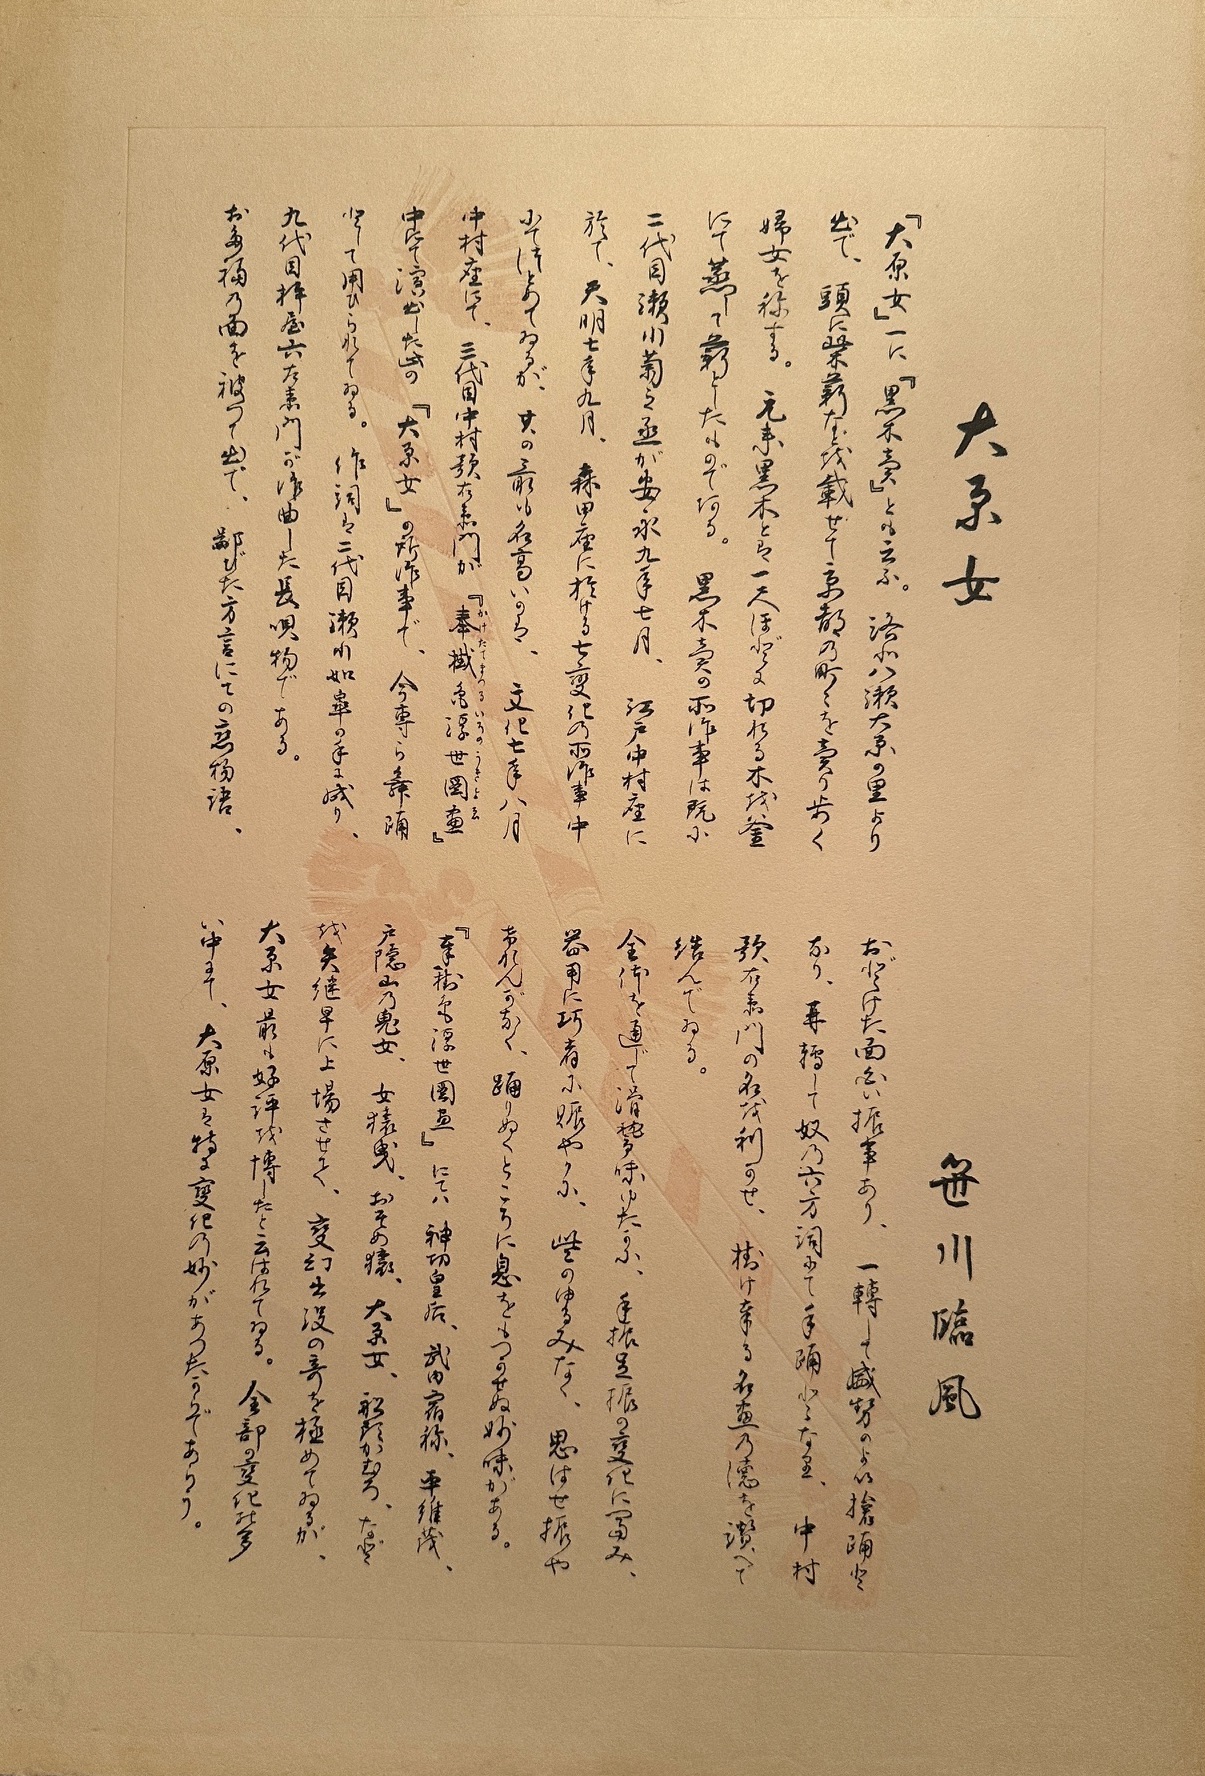 大原女
笹川臨風
『大原女』一に『黒木賣』とも云ふ。洛北八瀬大原の里より
出で、頭に柴薪などを載せて京都の町々を賣り歩く
婦女を称する。元来黒木とは一尺ほどに切れる木を釜
にて蒸して薪としたものである。黒木賣の所作事は既に
二代目瀬川菊之丞が安永九年七月、江戸中村座に
於て、天明七年九月、森田座に於ける七變化の所作事中
にてつとめてゐるが、其の最も名高いのは、文化七年八月
中村座にて、三代目中村歌右衛門が『奉掛色浮世圖畫』
かけたてまつるいろのうきよゑ
中にて演出した此の『大原女』の所作事で、今専ら舞踊
として用ひられてゐる。作詞は二代目瀬川如皐の手に成り、
九代目杵屋六左衛門が作曲した長唄物である。
お多福の面を被つて出で、鄙びた方言にての恋物語、
おどけた面白い振事あり、一轉して威勢のよい槍踊と
なり、再轉して奴の六方詞にて手踊となり、中村
歌右衛門の名を利かせ、掛け奉る名畫の徳を讃へて
結んでゐる。
全体を通じて滑稽味ゆたかに、手振足振の変化に富み、
器用に巧者に賑やかに、些のゆるみなく、思はせ振や
だれがなく、踊りぬくところに息をもつかせぬ妙味がある。
『奉掛色浮世圖画』にては神功皇后、武内宿祢、平維茂、
戸隠山の鬼女、女猿曳、おそめ猿、大原女、船頭かむろ、など
を矢継早に上場させて、変幻出没の奇を極めてゐるが、
大原女最も好評を博したと云はれてゐる。全部の變化の多
い中にて、大原女は特に變化の妙があつたのであらう。